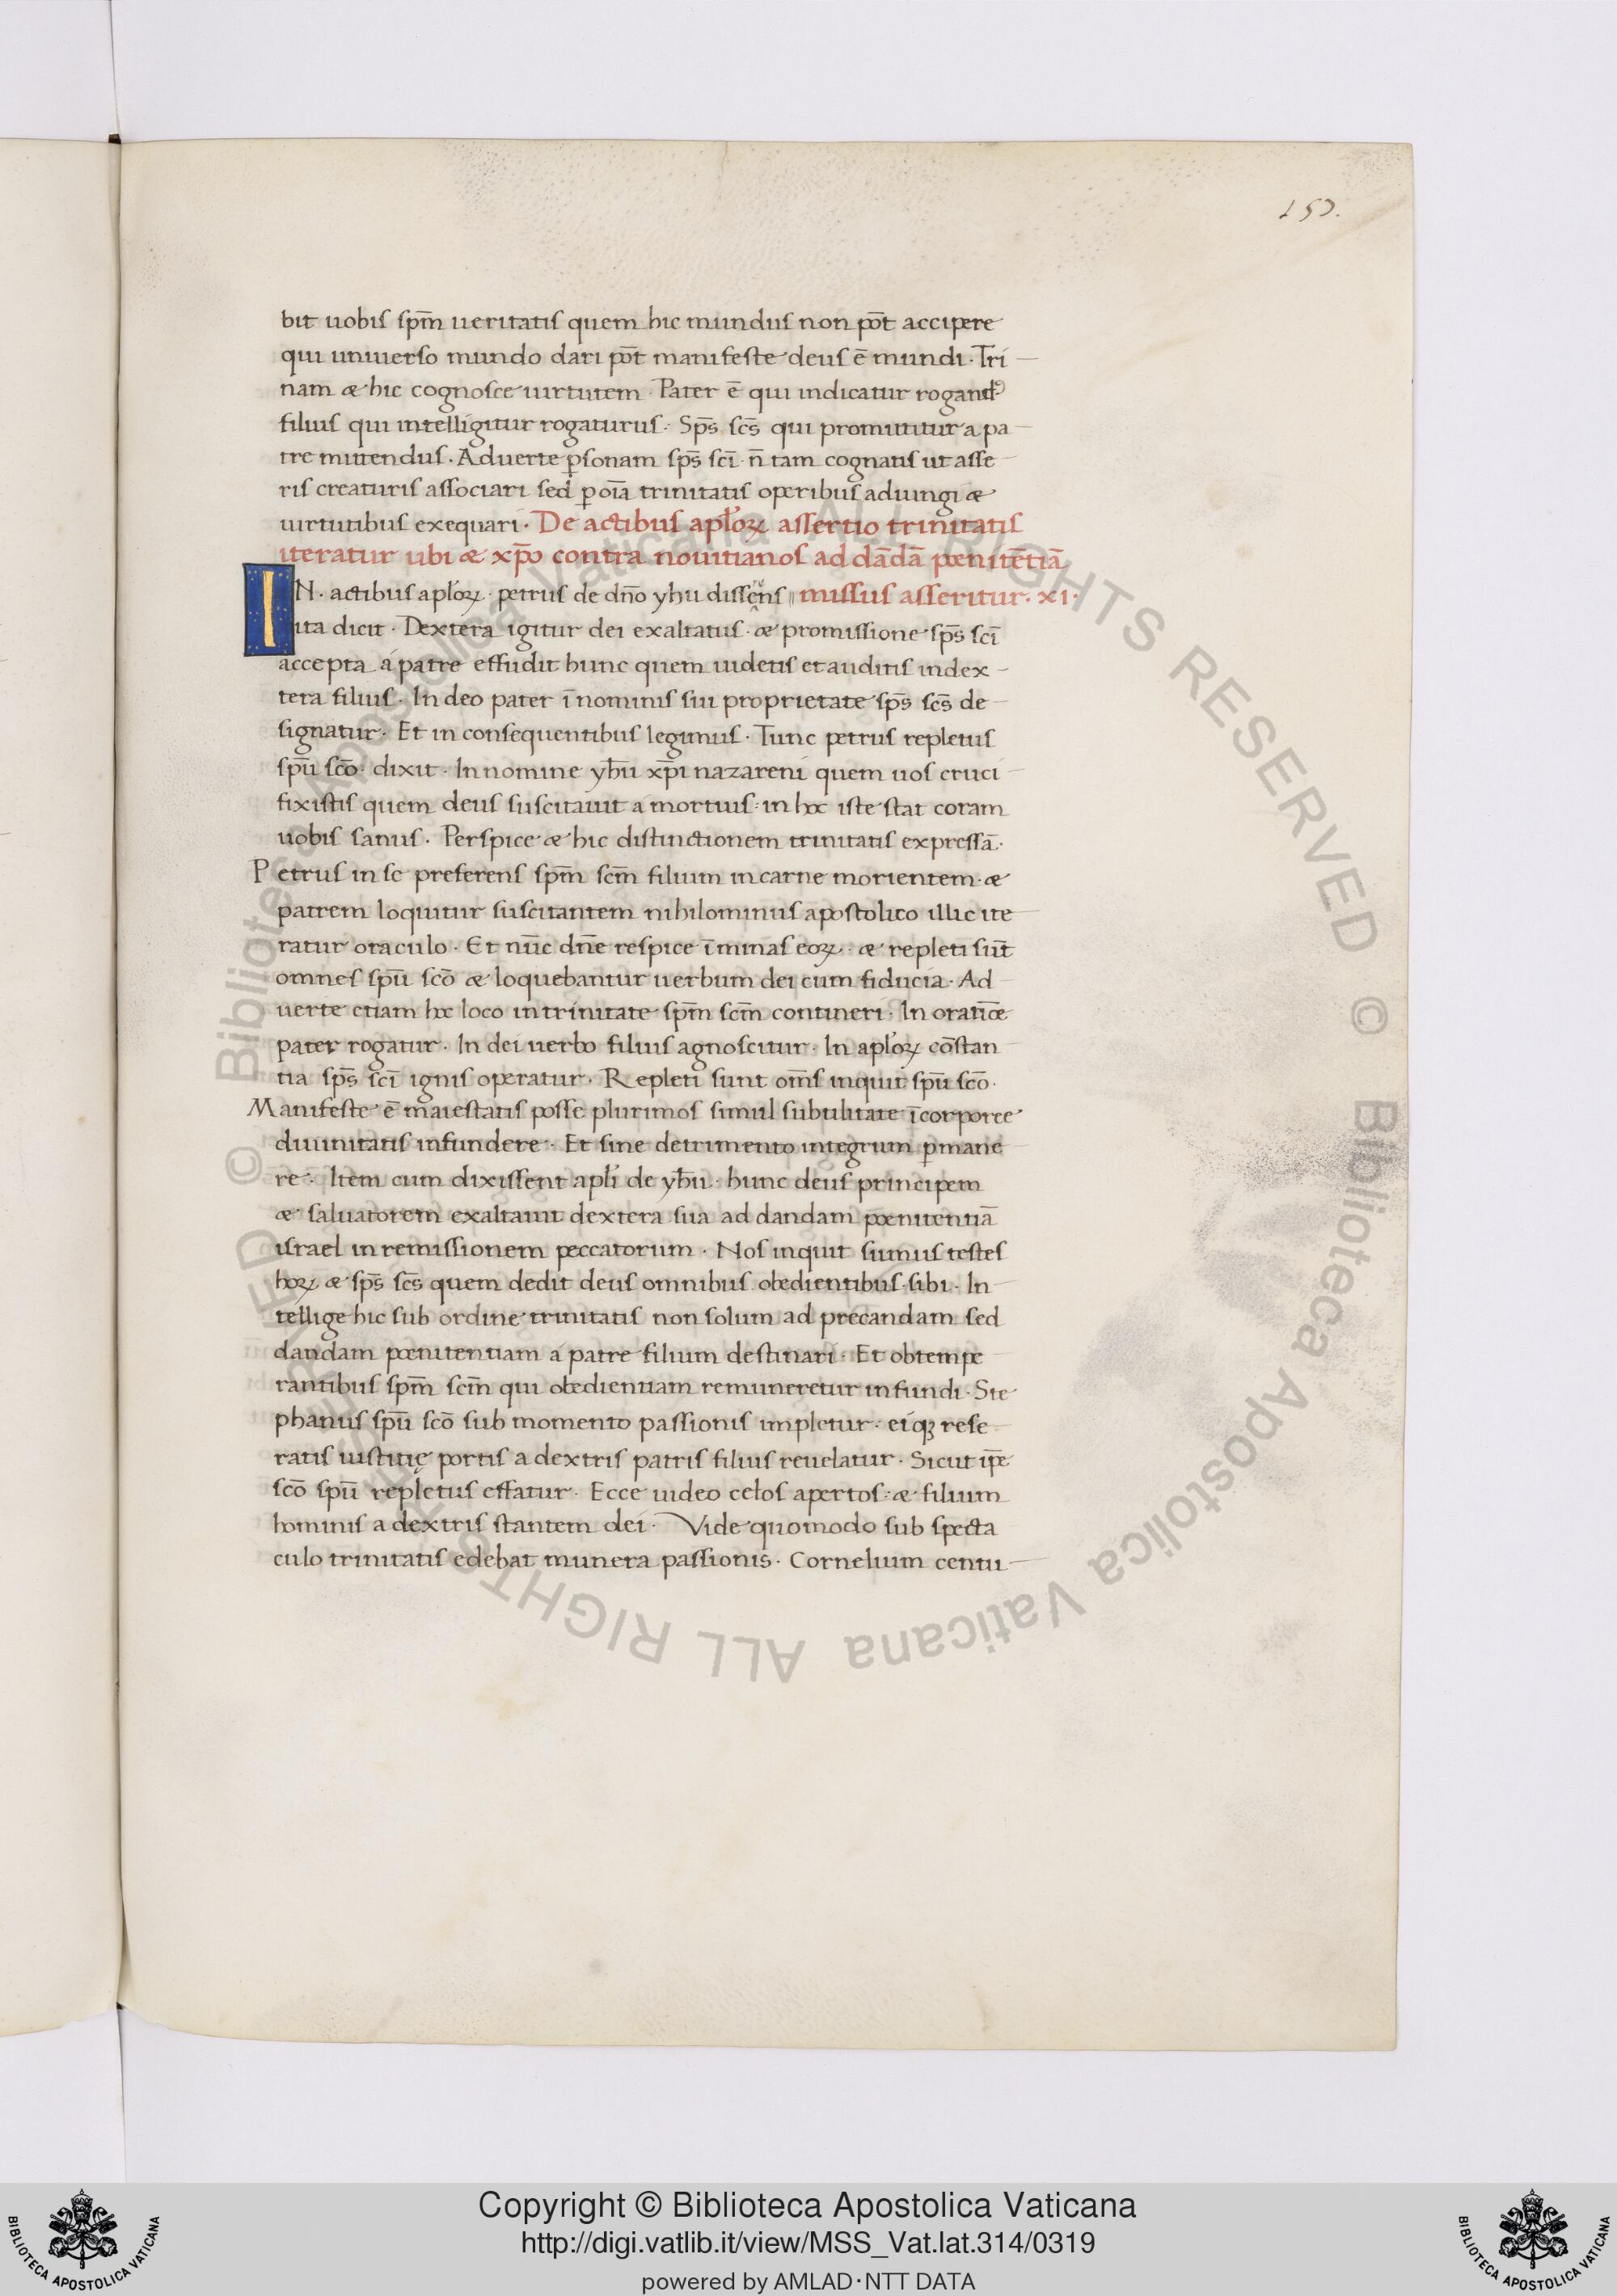 153.
bit uobis sp̄m ueritatis quem hic mundus non pōt accipere
qui uniuerso mundo dari pōt manifeste deus ē mundi · Tri
nam æ hic cognosce uirtutem · Pater ē qui indicatur rogandꝰ
filius qui intelligitur rogaturus · Sp̄s sc̄s qui promittitur a pa
tre mittendus · Aduerte ꝑsonam sp̄s sc̄i · n̄ tam cognatis ut asse
ris creaturis associari sed ꝑ oīa trinitatis operibus adiungi æ
uirtutibus exequari · De actibus apl'oꝝ assertio trinitatis
iteratur ubi æ xp̄o contra nouitianos ad dādā pœnitētiā
IN · actibus apl'oꝝ · petrus de dn̄o yhu disserens missus asseritur · xi ·
ita dicit · Dextera igitur dei exaltatus · æ promissione sp̄s sc̄i
accepta á patre effudit hunc quem uidetis et auditis in dex
tera filius · In deo pater ī nominis sui proprietate sp̄s sc̄s de
signatur · Et in consequentibus legimus · Tunc petrus repletus
sp̄u sc̄o · dixit · In nomine yh̄u xp̄i nazareni quem uos cruci
fixistis quem deus suscitauit a mortuis : in hoc iste stat coram
uobis sanus · Perspice æ hic distinctionem trinitatis expressā ·
Petrus in se preferens sp̄m sc̄m filium in carne morientem · æ
patrem loquitur suscitantem nihilominus apostolico illic ite
ratur oraculo · Et nūc dn̄e respice ī minas eoꝝ · æ repleti sūt
omnes sp̄u sc̄o æ loquebantur uerbum dei cum fiducia · Ad
uerte etiam hoc loco in trinitate sp̄m sc̄m contineri · In oratiōe
pater rogatur · In dei uerbo filius agnoscitur · In apl'oꝝ cōstan
tia sp̄s sc̄i ignis operatur · Repleti sunt om̄s inquit sp̄u sc̄o ·
Manifeste ē maiestatis posse plurimos simul subtilitate īcorporee
diuinitatis infundere · Et sine detrimento integrum ꝑmane
re · Item cum dixissent apl'i de yh̄u · hunc deus principem
æ saluatorem exaltauit dextera sua ad dandam pœnitentiā
israel in remissionem peccatorum · Nos inquit sumus testes
hoꝝ æ sp̄s sc̄s quem dedit deus omnibus obedientibus sibi · In
tellige hic sub ordine trinitatis non solum ad precandam sed
dandam pœnitentiam á patre filium destinari · Et obtempe
rantibus sp̄m sc̄m qui obedientiam remuneretur infundi · Ste
phanus sp̄u sc̄o sub momento passionis impletur · eiqꝫ rese
ratis iustitię portis a dextris patris filius reuelatur · Sicut ip̄e
sc̄o sp̄u repletus effatur · Ecce uideo celos apertos : æ filium
hominis a dextris stantem dei · Vide quomodo sub specta
culo trinitatis edebat munera passionis · Cornelium centu
© Biblioteca Apostolica Vaticana ALL RIGHTS RESERVED © Biblioteca Apostolica Vaticana ALL RIGHTS RESERVED
Copyright © Biblioteca Apostolica Vaticana
http://digi.vatlib.it/view/MSS_Vat.lat.314/0319
powered by AMLAD·NTT DATA
BIBLIOTECA APOSTOLICA VATICANA
BIBLIOTECA APOSTOLICA VATICANA